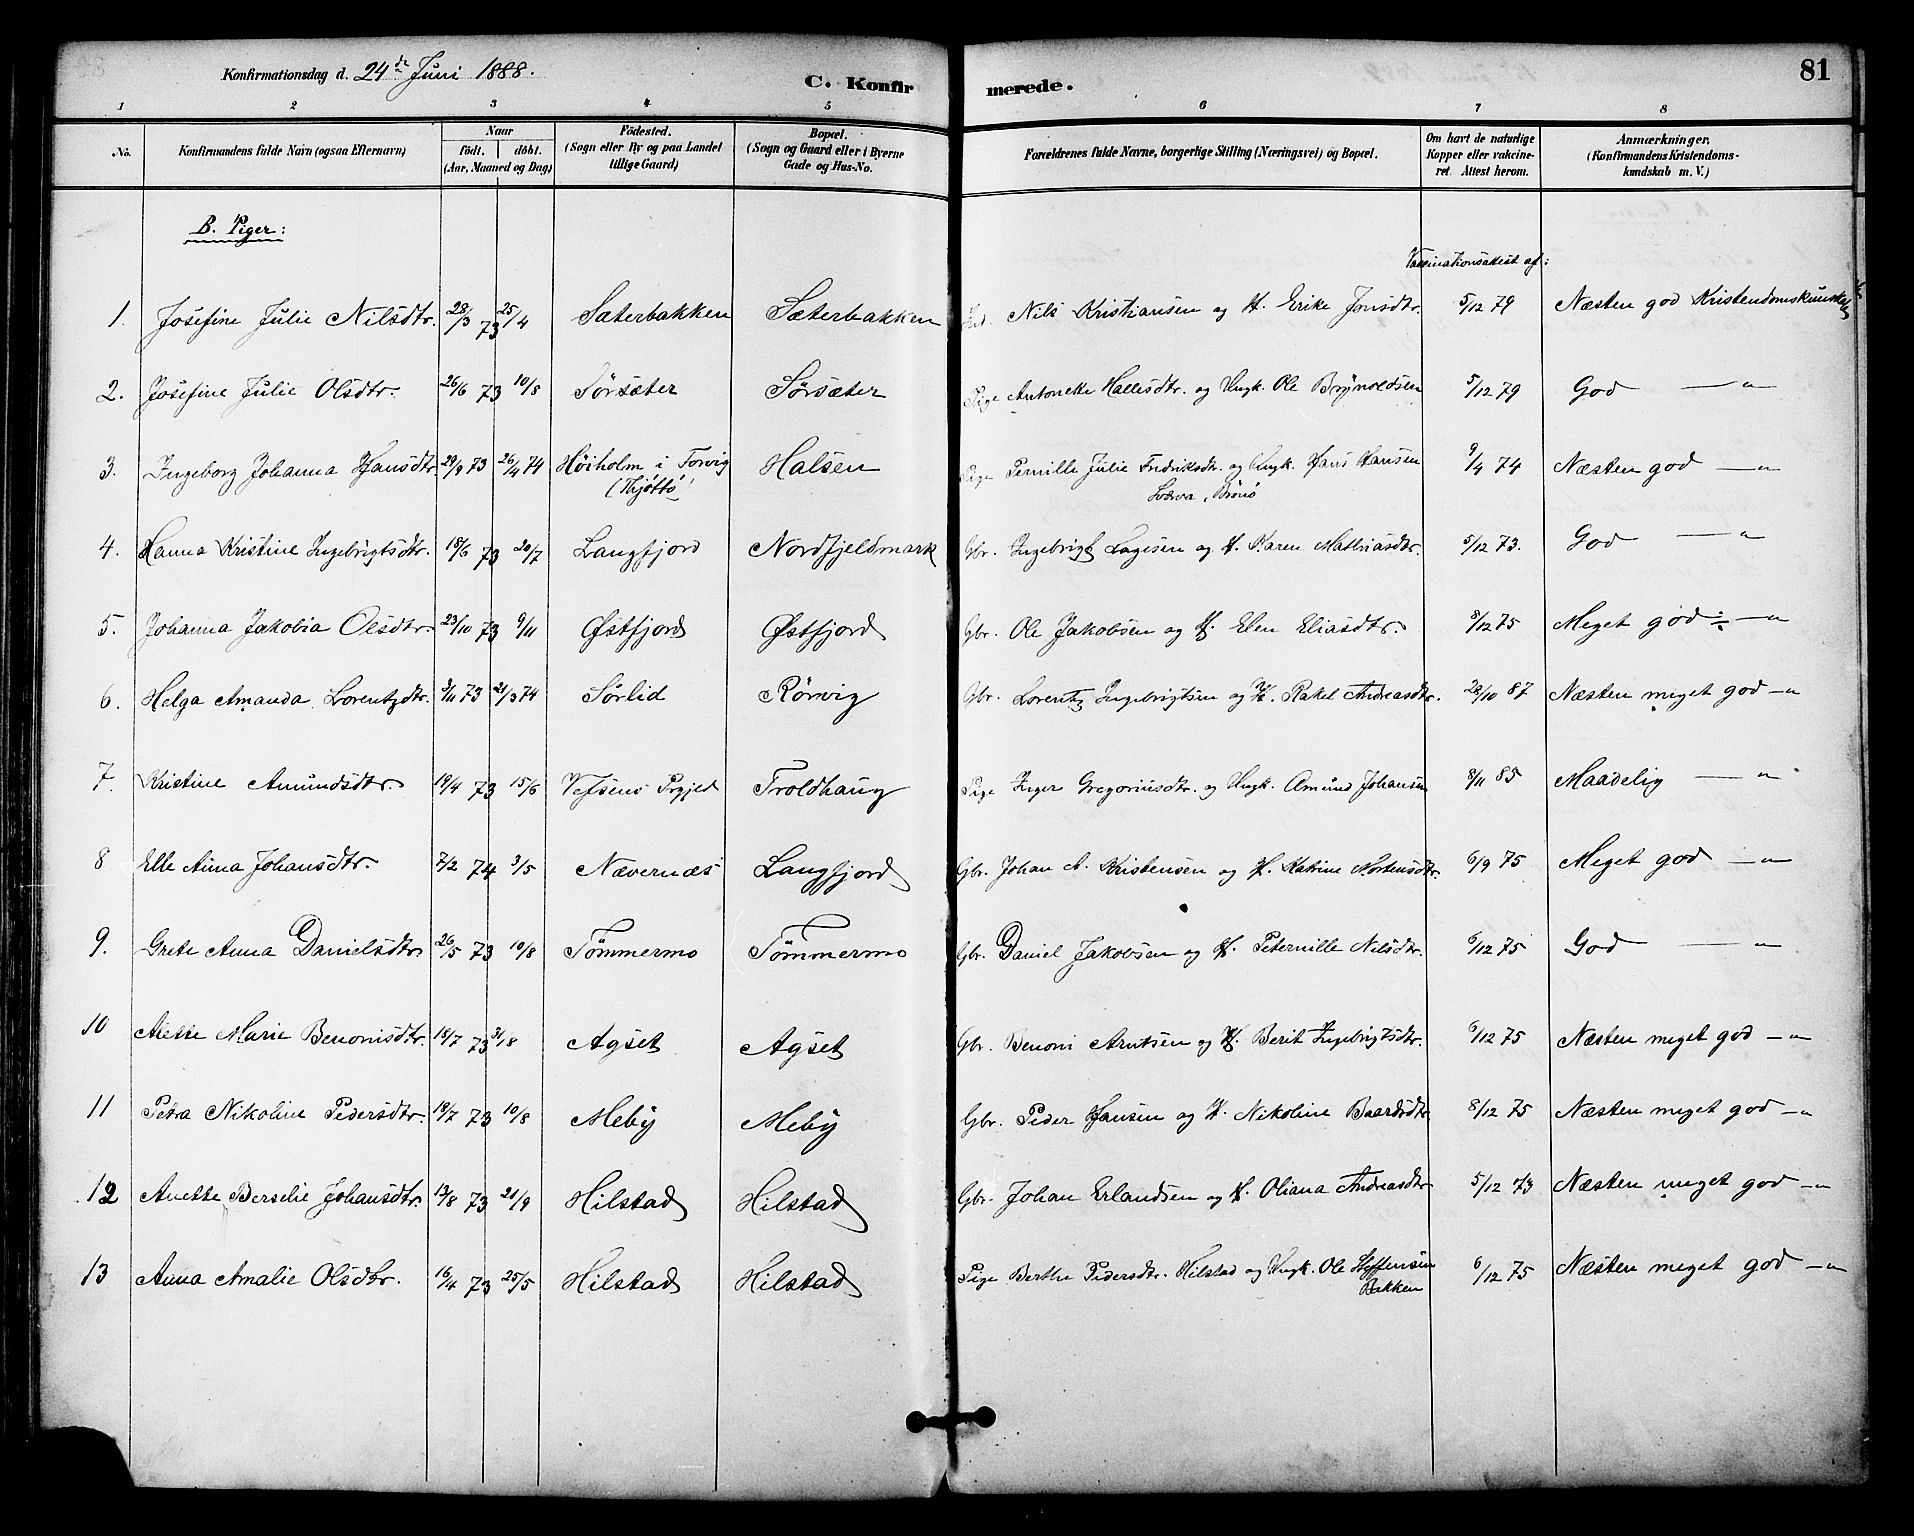 Konfirmationsdag d. 24de Juni 1888.
C. Konfirmerede.
81
1 2 3 4 5 6 7 8
No. Konfirmandens fulde Navn (ogsaa Efternavn) Naar födt. döbt. (Aar, Maaned og Dag) Födested. (Sogn eller By og paa Landet tillige Gaard) Bopæl. (Sogn og Gaard eller i Byerne Gade og Hus-No. Forældrenes fulde Navne, borgerlige Stilling (Næringsvei) og Bopæl. Om havt de naturlige Kopper eller vakcineret. Attest herom. Anmærkninger. (Konfirmandens Kristendomskundskab m. V.)
B. Piger:
Vaccinationsattest af:
1. Josefine Julie Nilsdtr. 28/3 73 25/4 Sæterbakken Sæterbakken Ind. Nils Kristiansen og H. Erike Jonsdtr. 5/12 79 Næsten god Kristendomskundskab
2. Josefine Julie Olsdtr. 26/6 73 10/8 Sörsæter Sörsæter Pige Antonette Hallesdtr. og Ungk. Ole Brynoldsen 5/12 79 God — "
3. Ingeborg Johanna Hansdtr. 29/9 73 26/4 74 Höiholm i Torvig (Thjöttö) Halsen Pige Pernille Julie Fredriksdtr. og Ungk. Hans Hansen 9/4 74 Næsten god — "
, Brönö
4. Hanna Kristine Ingebrigtsdtr. 18/6 73 20/7 Langfjord Nordfjeldmark Gbr. Ingebrigt Lagesen og H. Karen Mathiasdtr. 5/12 73. God — "
5. Johanna Jakobia Olsdtr. 23/10 73 9/11 Østfjord Østfjord Gbr. Ole Jakobsen og H. Elen Eliasdtr. 8/12 75 Meget god ÷ — "
6. Helga Amanda Lorentzdtr. 3/11 73 21/3 74 Sörlid Rörvig Gbr. Lorentz Ingebrigtsen og H. Rakel Andreasdtr. 28/10 87 Næsten meget god — "
7. Kristine Amundsdtr. 19/4 73 15/6 Vefsens Prgjeld Troldhaug Pige Inger Gregoriusdtr. og Ungk. Amund Johansen 8/11 85 Maadelig — "
8 Elle Anna Johansdtr. 7/2 74 3/5 Nævernæs Langfjord Gbr. Johan A. Kristensen og H. Katrine Mortensdtr. 6/9 75 Meget god — "
9. Grete Anna Danielsdtr. 26/5 73 10/8 Tömmermo Tömmermo Gbr. Daniel Jakobsen og H. Peternille Nilsdtr. 6/12 75 God — "
10 Anette Marie Benonisdtr. 18/7 73 31/8 Agset Agset Gbr. Benoni Arntsen og H. Berit Ingebrigtsdtr. 6/12 75 Næsten meget god — "
11 Petra Nikoline Pedersdtr. 18/7 73 10/8 Meby Meby Gbr. Peder Hansen og H. Nikoline Baardsdtr 8/12 75 Næsten meget god — "
12 Anette Berselie Johansdtr. 13/8 73 21/9 Hilstad Hilstad Gbr. Johan Erlandsen og H. Oliana Andreasdtr 5/12 73 Næsten meget god — "
13 Anna Amalie Olsdtr. 16/4 73 25/5 Hilstad Hilstad Pige Berthe Pedersdtr. Hilstad og Ungk. Ole 6/12 75 Næsten meget god — "
Bakken